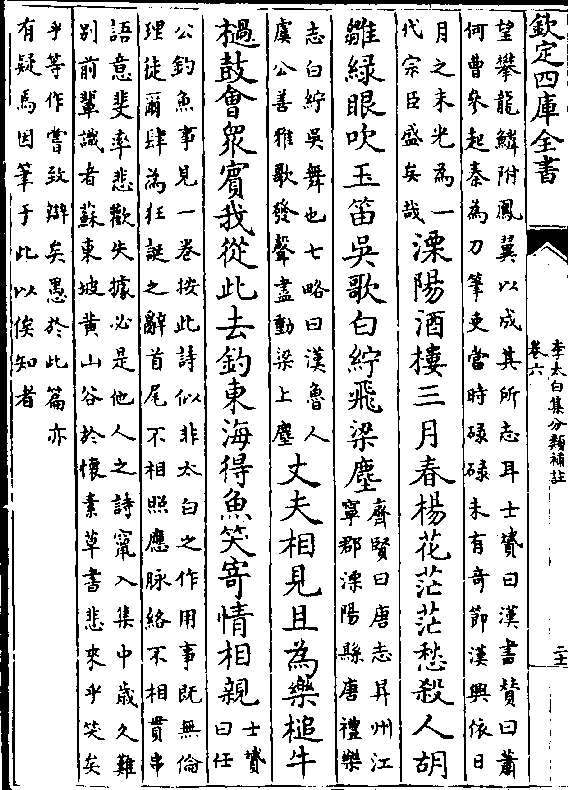 欽定四庫全書
李太白集分類補註
卷六
望攀龍鱗附鳳翼以成其所志耳士贇曰漢書贊曰蕭
何曹參起秦為刀筆吏當時碌碌未有奇節漢興依日
月之末光為一
代宗臣盛矣哉
溧陽酒樓三月春楊花茫茫愁殺人胡
雛緑眼吹玉笛吳歌白紵飛梁塵
齊賢曰唐志昇州江
寧郡溧陽縣唐禮樂
志白紵吳舞也七略曰漢魯人
虞公善雅歌發聲盡動梁上塵
丈夫相見且為樂槌牛
撾鼓會衆賔我從此去釣東海得魚笑寄情相親
士贇
曰任
公釣魚事見一卷按此詩似非太白之作用事既無倫
理徒爾肆為狂誕之辭首尾不相照應脉絡不相貫串
語意斐率悲歡失據必是他人之詩竄入集中歲久難
别前輩識者蘇東坡黄山谷於懷素草書悲來乎笑矣
乎等作嘗致辯矣愚於此篇亦
有疑焉因筆于此以俟知者